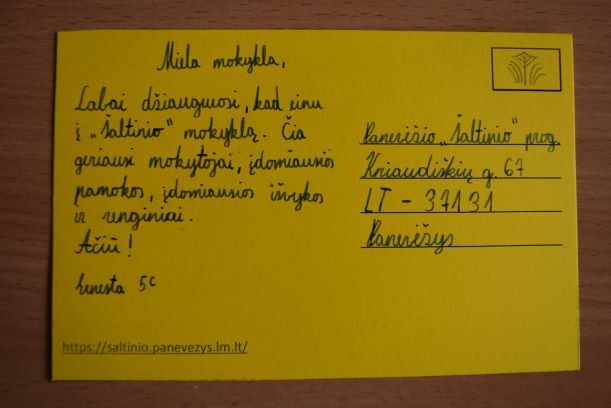 Miela mokykla,
Labai džiaugiuosi, kad einu
į „Šaltinio" mokyklą. Čia
geriausi mokytojai, įdomiausios
pamokos, įdomiausios išvykos
ir renginiai.
Ačiū!
Ernesta 5c
https://saltinio.panevezys.lm.lt/
Panevėžio „Šaltinio" prog.
Kniaudiškių g. 67
LT - 37131
Panevėžys